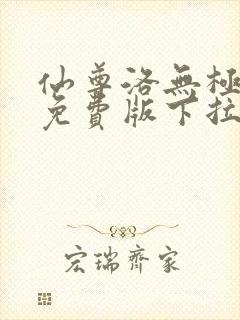 仙尊洛無極
免費版下拉
宏瑞齊家